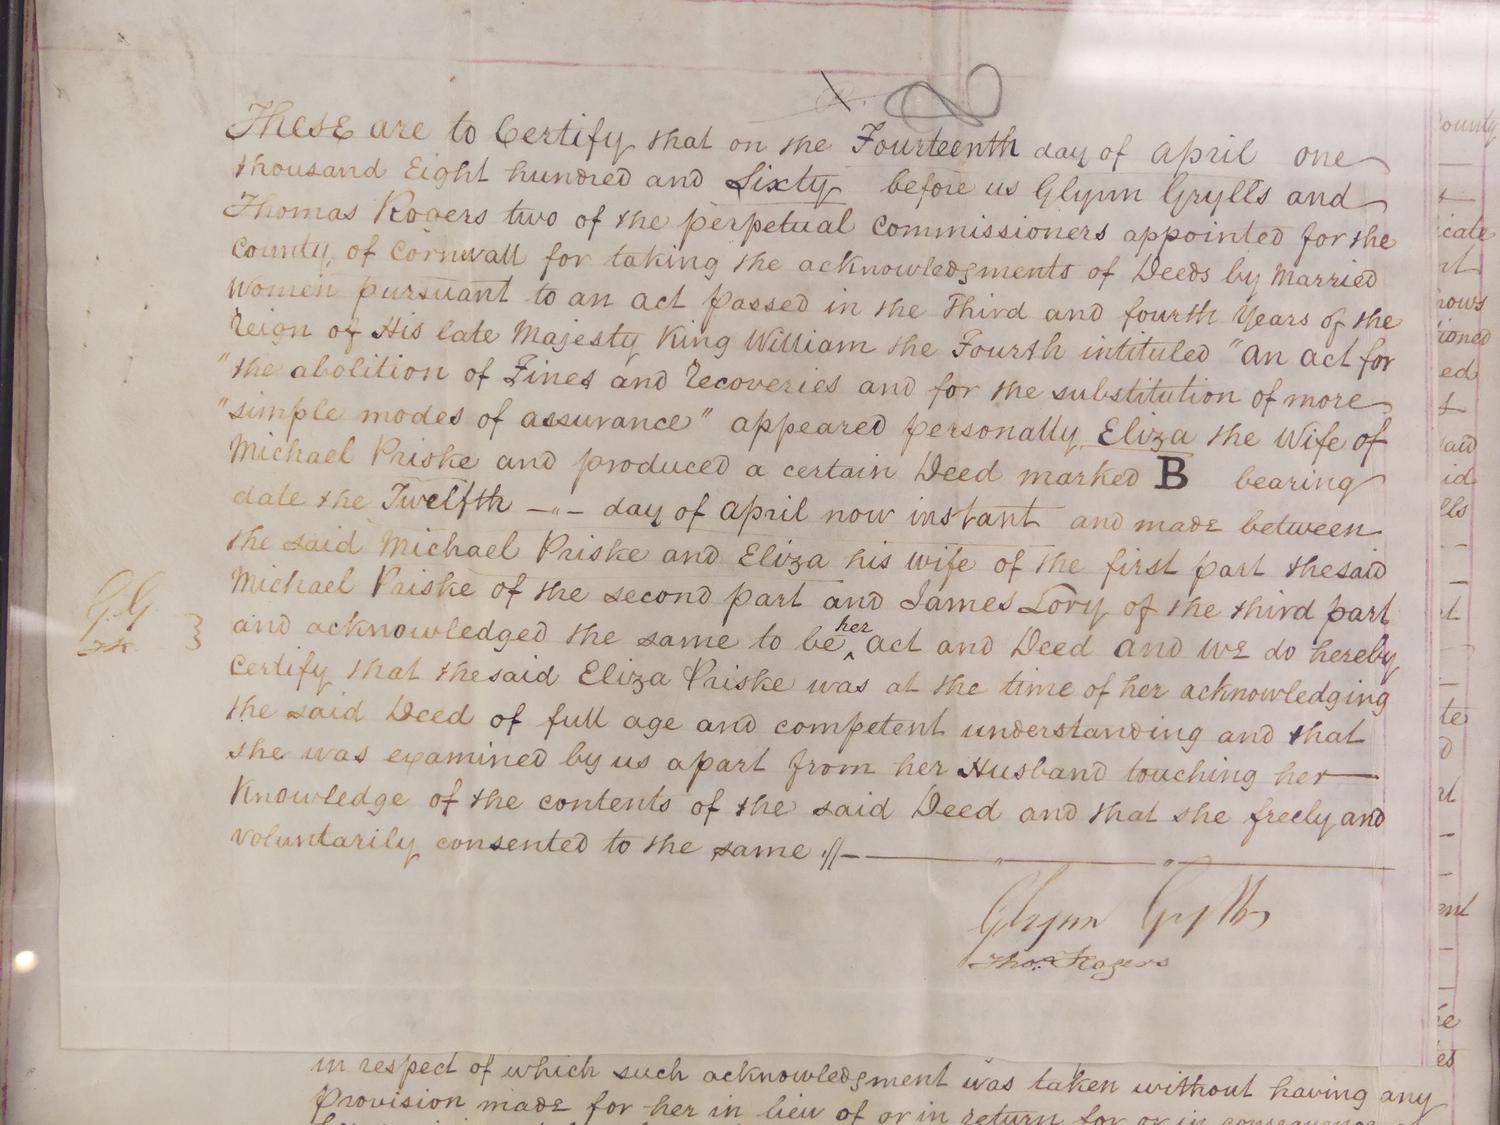 These are to Certify that on the Fourteenth day of April one
thousand Eight hundred and Sixty before us Glynn Grylls and
Thomas Rogers two of the perpetual commissioners appointed for the
County, of Cornwall for taking the acknowledgments of Deeds by Married
Women pursuant to an act passed in the Third and fourth Years of the
Reign of His late Majesty King William the Fourth intituled "an act for
"the abolition of Fines and Recoveries and for the substitution of more
"simple modes of assurance" appeared personally Eliza the Wife of
Michael Priske and produced a certain Deed marked B bearing
date the Twelfth —"— day of April now instant and made between
the said Michael Priske and Eliza his wife of the first part the said
Michael Priske of the second part and James Lory of the third part
G.G.
TR
and acknowledged the same to be ^her act and Deed and we do hereby
Certify that the said Eliza Priske was at the time of her acknowledging
the said Deed of full age and competent understanding and that
she was examined by us apart from her Husband touching her
Knowledge of the contents of the said Deed and that she freely and
voluntarily consented to the same
Glynn Grylls
Thos. Rogers
in respect of which such acknowledgment was taken without having any
Provision made for her in lieu of or in return for or in consequence
County